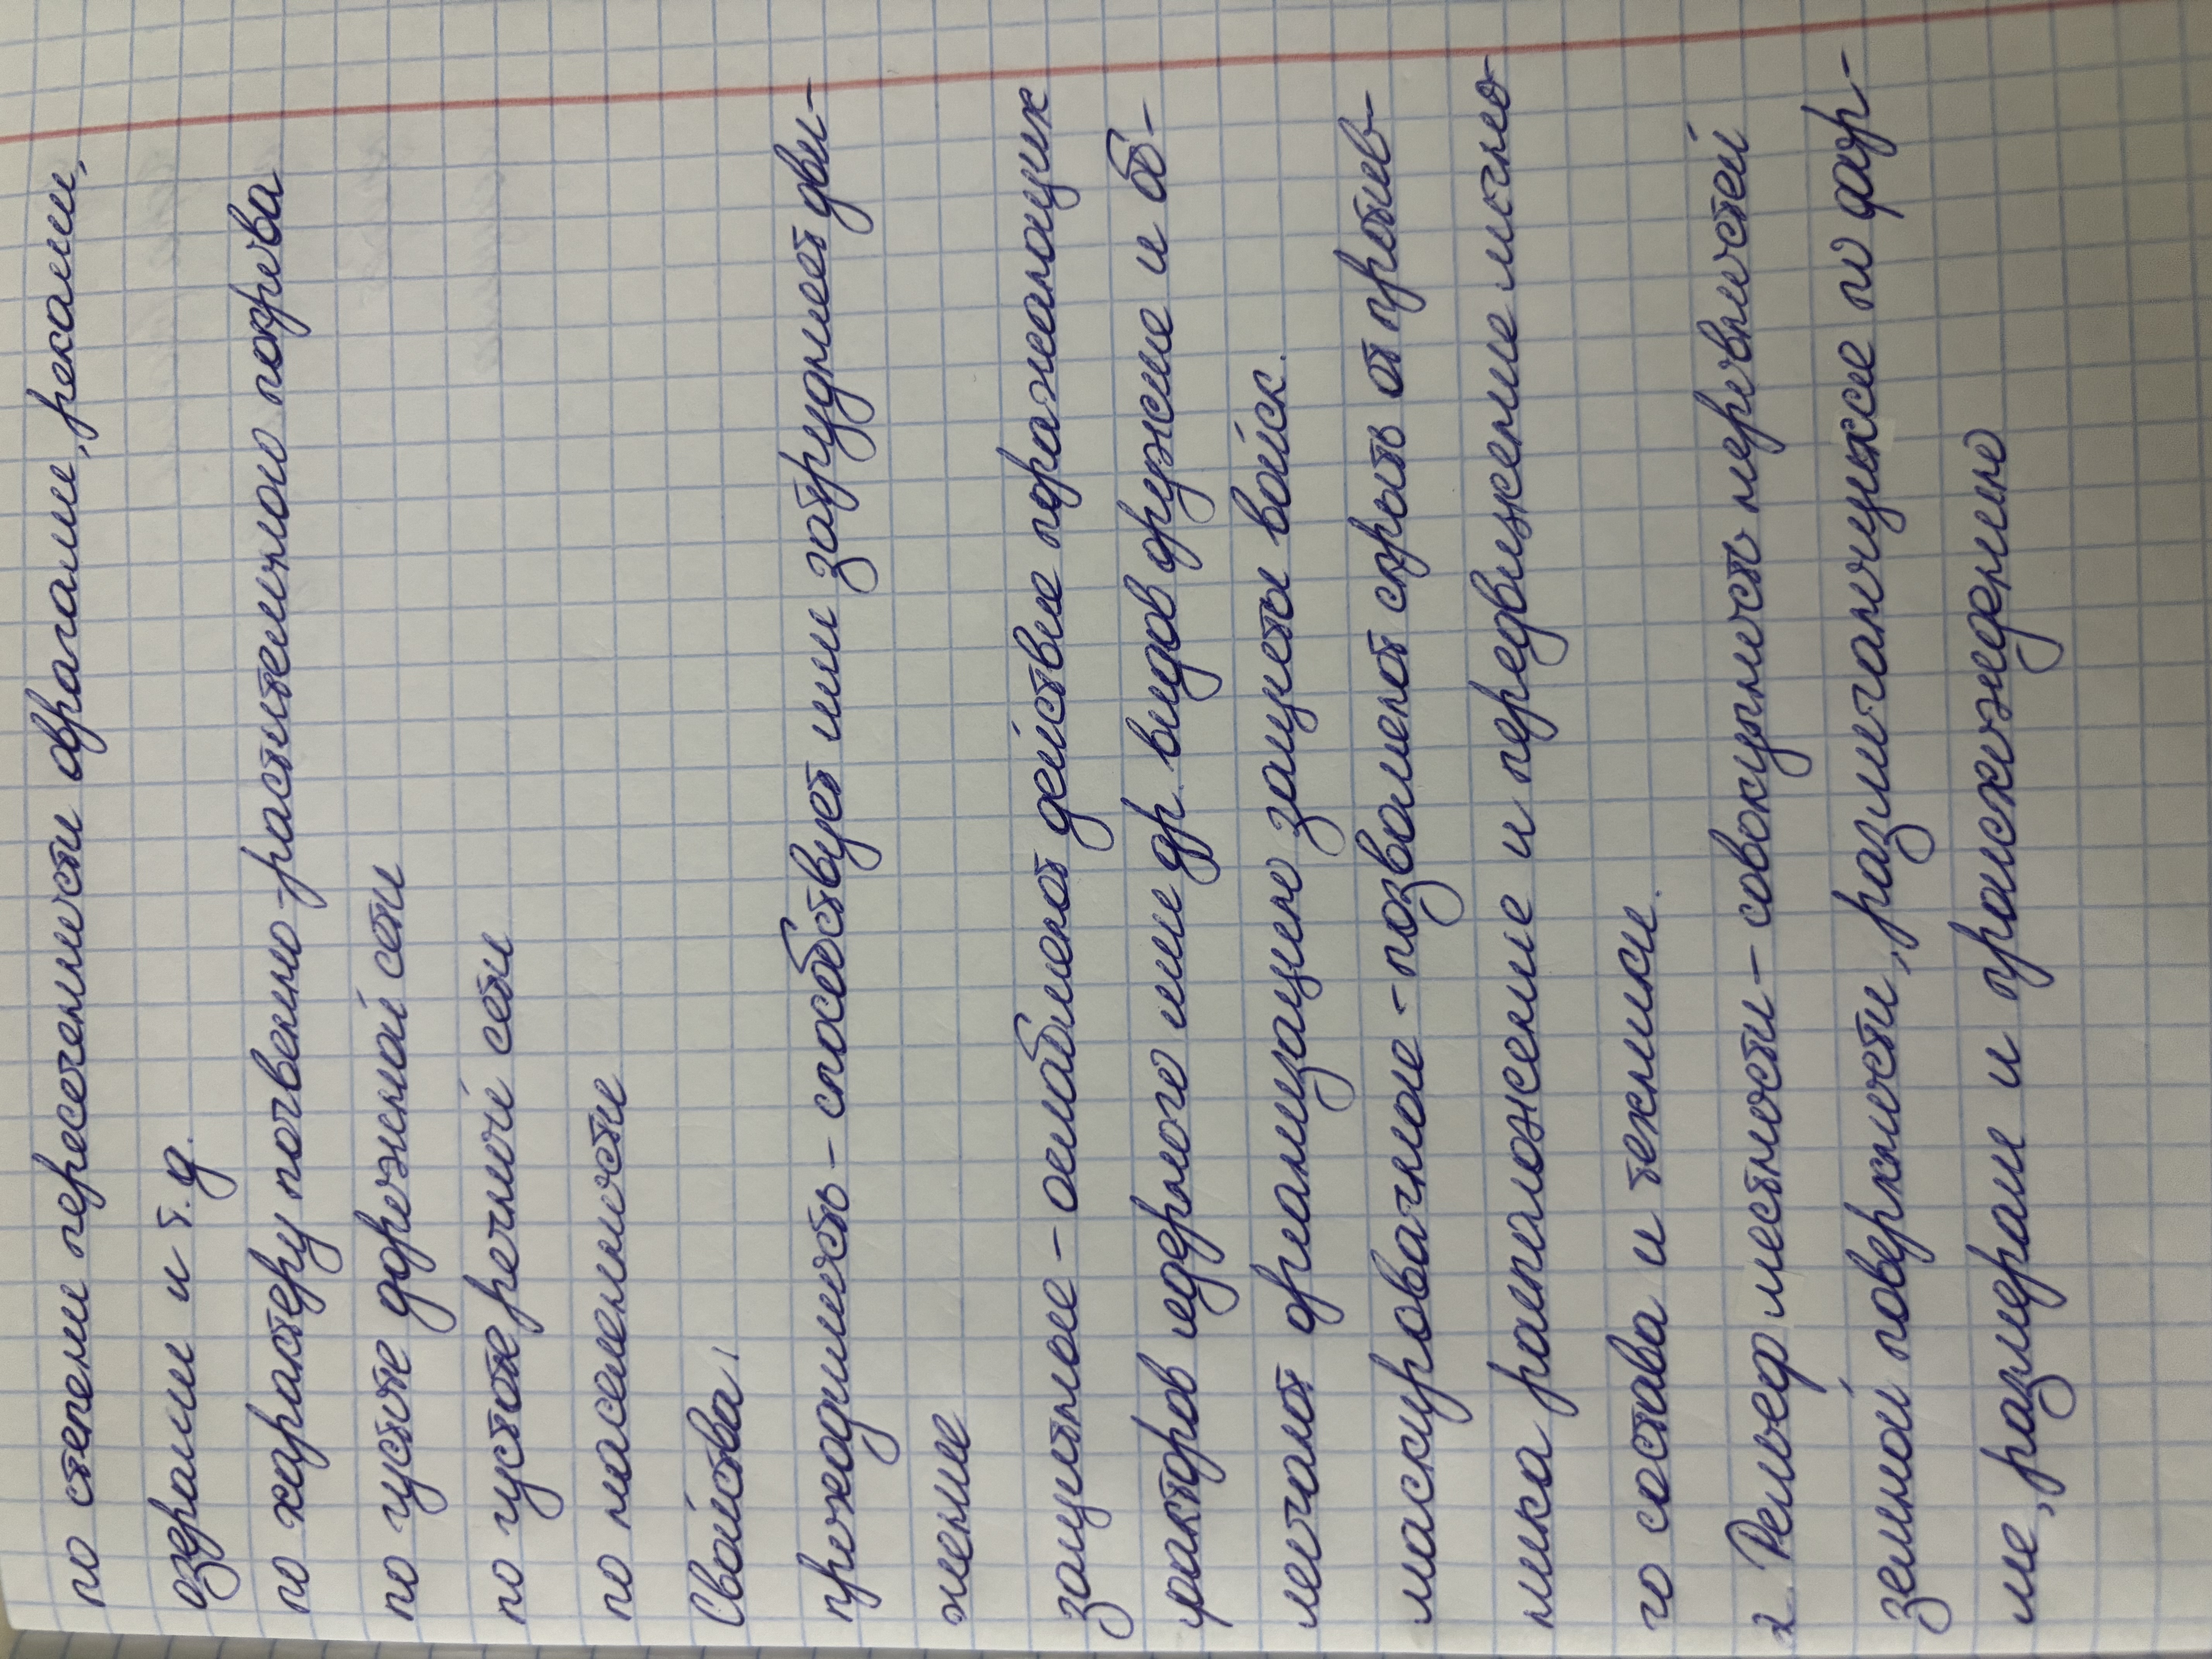 по степени пересеченности оврагами, реками,
озерами и т.д.
по характеру почвенно-растительного покрова
по густоте дорожной сети
по густоте речной сети
по населенности
Свойства:
проходимость - способствует или затрудняет дви-
жение
защитные - ослабляют действие поражающих
факторов ядерного или др. видов оружие и об-
легчают организацию защиты войск.
маскировачные - позволяют скрыть от против-
ника расположение и передвижение лично-
го состава и техники.
2. Рельеф местности - совокупность неровностей
земной поверхности, различающихся по фор-
ме, размерам и происхождению